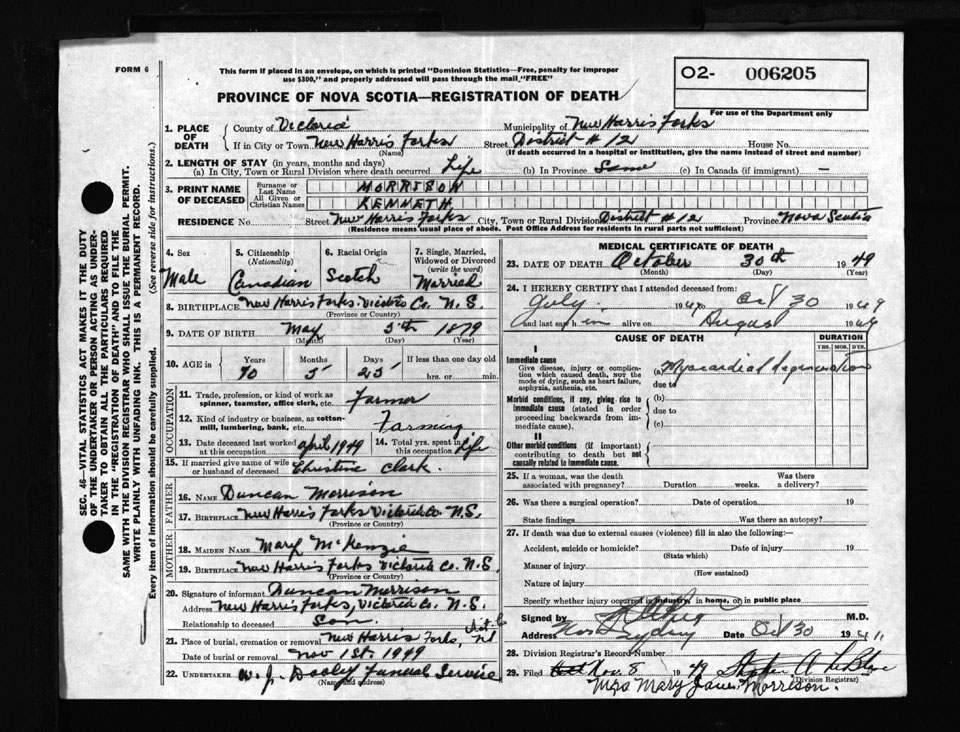 FORM 6
This form if placed in an envelope, on which is printed "Dominion Statistics—Free, penalty for improper
use $300," and properly addressed will pass through the mail "FREE"
PROVINCE OF NOVA SCOTIA—REGISTRATION OF DEATH
O2- 006205
For use of the Department only
SEC. 46—VITAL STATISTICS ACT MAKES IT THE DUTY
OF THE UNDERTAKER OR PERSON ACTING AS UNDER-
TAKER TO OBTAIN ALL THE PARTICULARS REQUIRED
IN THE "REGISTRATION OF DEATH" AND TO FILE THE
SAME WITH THE DIVISION REGISTRAR WHO SHALL ISSUE THE BURIAL PERMIT.
WRITE PLAINLY WITH UNFADING INK. THIS IS A PERMANENT RECORD.
Every item of information should be carefully supplied. (See reverse side for instructions.)
1. PLACE OF DEATH County of Victoria Municipality of New Harris Forks
If in City or Town New Harris Forks Street District # 12 House No.
(Name) (If death occurred in a hospital or institution, give the name instead of street and number)
2. LENGTH OF STAY (in years, months and days)
(a) In City, Town or Rural Division where death occurred Life (b) In Province Same (c) In Canada (if immigrant) —
3. PRINT NAME OF DECEASED Surname or Last Name MORRISON
All Given or Christian Names KENNETH
RESIDENCE No. Street New Harris Forks City, Town or Rural Division District # 12 Province Nova Scotia
(Residence means usual place of abode. Post Office Address for residents in rural parts not sufficient)
4. Sex Male
5. Citizenship (Nationality) Canadian
6. Racial Origin Scotch
7. Single, Married, Widowed or Divorced (write the word) Married
8. BIRTHPLACE New Harris Forks. Victoria Co. N.S.
(Province or County)
9. DATE OF BIRTH May 5th 1879
(Month) (Day) (Year)
10. AGE in Years 70 Months 5 Days 25 If less than one day old hrs. or min.
OCCUPATION
11. Trade, profession, or kind of work as spinner, teamster, office clerk, etc. Farmer
12. Kind of industry or business, as cotton-mill, lumbering, bank, etc. Farming
13. Date deceased last worked at this occupation April 1949 14. Total yrs. spent in this occupation Life
15. If married give name of wife or husband of deceased Christine Clark.
FATHER
16. NAME Duncan Morrison
17. BIRTHPLACE New Harris Forks Victoria Co N.S.
(Province or County)
MOTHER
18. MAIDEN NAME Mary McKenzie
19. BIRTHPLACE New Harris Forks Victoria Co. N.S.
(Province or County)
20. Signature of informant Duncan Morrison
Address New Harris Forks, Victoria Co. N.S.
Relationship to deceased Son.
21. Place of burial, cremation or removal New Harris Forks,
Date of burial or removal Nov 1st. 1949
22. UNDERTAKER W. J. Dooley Funeral Service
(Name and address)
MEDICAL CERTIFICATE OF DEATH
23. DATE OF DEATH October 30th 1949
(Month) (Day) (Year)
24. I HEREBY CERTIFY that I attended deceased from:
July 19 Oct 30 1949
and last saw him alive on August 19
CAUSE OF DEATH DURATION
YRS. MOS. DYS.
I
Immediate cause
Give disease, injury or complication which caused death, not the mode of dying, such as heart failure, asphyxia, asthenia, etc. (a) Myocardial degeneration
due to
Morbid conditions, if any, giving rise to immediate cause (stated in order proceeding backwards from immediate cause). (b)
due to
(c)
II
Other morbid conditions (if important) contributing to death but not causally related to immediate cause.
25. If a woman, was the death associated with pregnancy? Duration weeks. Was there a delivery?
26. Was there a surgical operation? Date of operation 19
State findings Was there an autopsy?
27. If death was due to external causes (violence) fill in also the following:—
Accident, suicide or homicide? Date of injury 19
(State which)
Manner of injury
(How sustained)
Nature of injury
Specify whether injury occurred in industry, in home, or in public place
Signed by M.D.
Address Sydney Date Oct 30 19
28. Division Registrar's Record Number
29. Filed Nov. 8 1949
(Division Registrar)
Mrs Mary Jane Morrison.